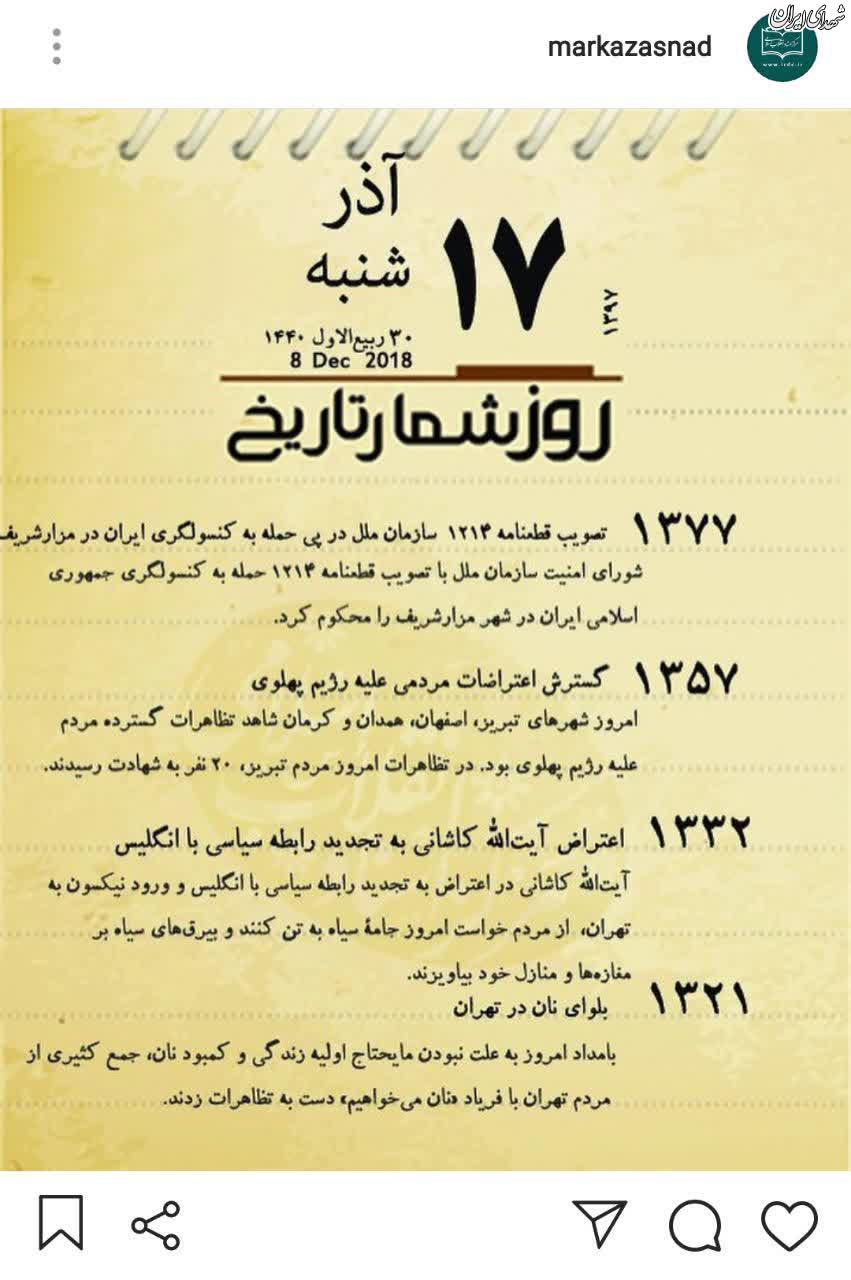 شهدای ایران
markazasnad
www.irdc.ir
آذر
۱۷
شنبه
۱۳۹۷
۳۰ ربیع‌الاول ۱۴۴۰
8 Dec 2018
روزشمار تاریخ
۱۳۷۷ تصویب قطعنامه ۱۲۱۴ سازمان ملل در پی حمله به کنسولگری ایران در مزارشریف
شورای امنیت سازمان ملل با تصویب قطعنامه ۱۲۱۴ حمله به کنسولگری جمهوری
اسلامی ایران در شهر مزارشریف را محکوم کرد.
۱۳۵۷ گسترش اعتراضات مردمی علیه رژیم پهلوی
امروز شهرهای تبریز، اصفهان، همدان و کرمان شاهد تظاهرات گسترده مردم
علیه رژیم پهلوی بود. در تظاهرات امروز مردم تبریز، ۲۰ نفر به شهادت رسیدند.
۱۳۳۲ اعتراض آیت‌الله کاشانی به تجدید رابطه سیاسی با انگلیس
آیت‌الله کاشانی در اعتراض به تجدید رابطه سیاسی با انگلیس و ورود نیکسون به
تهران، از مردم خواست امروز جامهٔ سیاه به تن کنند و بیرق‌های سیاه بر
مغازه‌ها و منازل خود بیاویزند.
۱۳۲۱ بلوای نان در تهران
بامداد امروز به علت نبودن مایحتاج اولیه زندگی و کمبود نان، جمع کثیری از
مردم تهران با فریاد «نان می‌خواهیم» دست به تظاهرات زدند.